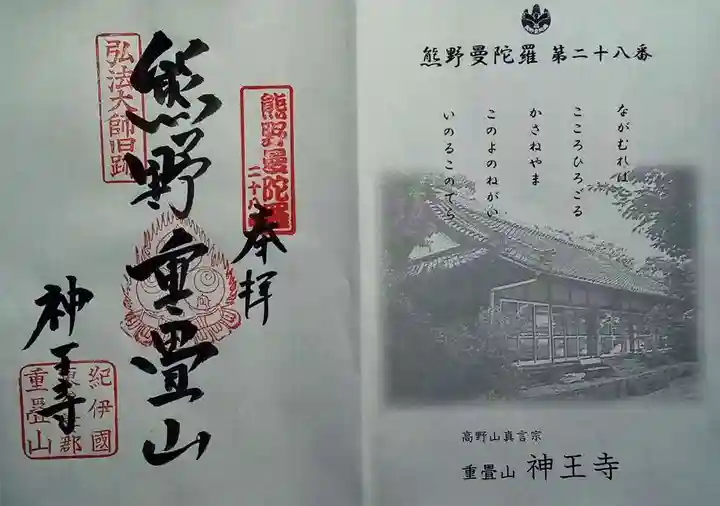 熊野曼陀羅 第二十八番
ながむれば
こころひろごる
かさねやま
このよのねがい
いのるこのてら
高野山真言宗
重畳山 神王寺
熊野曼陀羅
二十八
奉拝
弘法大師旧跡
熊野重畳山
神王寺
紀伊國
郡
重疊山